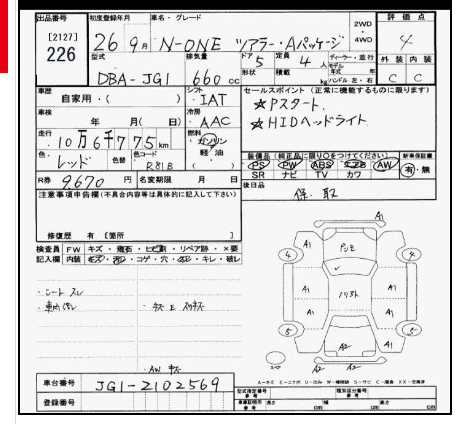 出品番号 初度登録年月 車名・グレード 2WD・4WD 評価点
[2127] 226 26 9月 N-ONE ツアラー・Aパッケージ 4
型式 排気量 ドア 定員 ディーラー・並行 外装 内装
DBA-JG1 660 cc 5 4人 C C
形状 積載 モデル年式 年 kg ハンドル 左・右
車歴 シフト セールスポイント(正常に機能するものに限ります)
自家用・( ) IAT ☆Pスタート.
車検 冷房 ☆HIDヘッドライト
年 月( 日) AAC
走行 燃料
10万6千775km ガソリン
色 色替 色コード 軽・油
レッド R81B ( )
装備品(純正品に限り○をつけてください) 新車保証書
PS PW ABS エアB AW 有・無
SR ナビ TV カワ
R券 9670円 名変期限 月 日
後日品
保.取
注意事項申告欄(不具合内容等は具体的に記入して下さい)
修復歴 有 [箇所 ]
検査員記入欄 FW キズ・飛石・ヒビ割・リペア跡・×要
内装 キズ・汚レ・コゲ・穴・ヌレ・キレ・破レ
・シート スレ
・車内汚レ
・AW キズ
A1 A1
4 4
A1 A1 A1 A1
5 5
A2 A2
A-キズ E-エクボ U-凹み W-補修跡 S-サビ C-腐食 XX-交換済
車台番号 JG1-2102569
登録番号
型式指定番号 参考 類別区分番号 参考
車両証明用参考 長さ cm 幅 cm 高さ cm